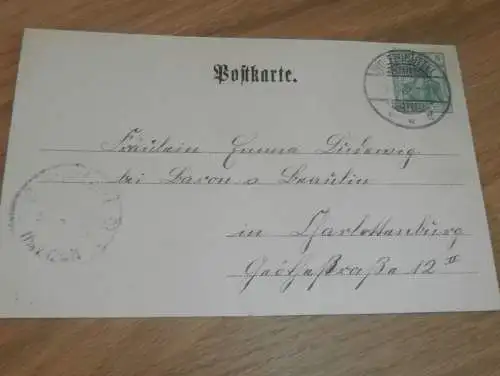 Postkarte.
Fräulein Emma Ludewig
bei Baron v Beaulin
in Charlottenburg
Goethestraße 12 II